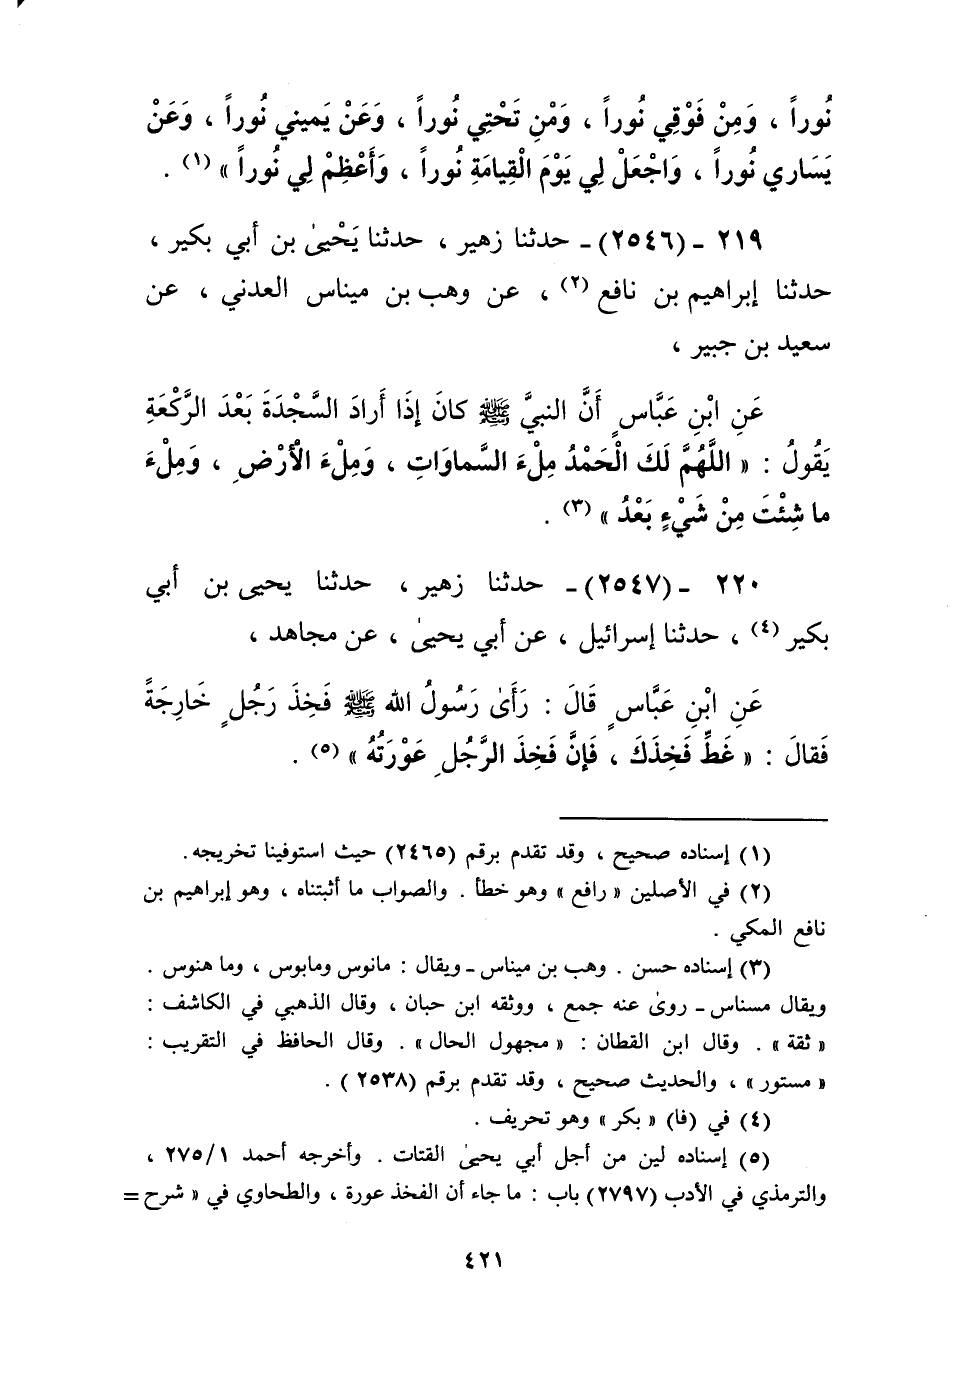 نُوراً ، وَمِنْ فَوْقِي نُوراً ، وَمْنِ تَحْتِي نُوراً ، وَعَنْ يَميني نُوراً ، وَعَنْ
يَسَاري نُوراً ، وَاجْعَلْ لِي يَوْمَ الْقِيامَةِ نُوراً ، وَأَعْظِمْ لِي نُوراً » (١) .
٢١٩ - (٢٥٤٦) - حدثنا زهير ، حدثنا يَحْيىٰ بن أبي بكير ،
حدثنا إبراهيم بن نافع (٢) ، عن وهب بن ميناس العدني ، عن
سعيد بن جبير ،
عَنِ ابْنِ عَبَّاسٍ أَنَّ النبيَّ ﷺ كانَ إذَا أَرادَ السَّجْدَةَ بَعْدَ الرَّكْعَةِ
يَقُولُ : « اللَّهُمَّ لَكَ الْحَمْدُ مِلْءَ السَّماوَاتِ ، وَمِلْءَ الْأَرْضِ ، وَمِلْءَ
ما شِئْتَ مِنْ شَيْءٍ بَعْدُ » (٣) .
٢٢٠ - (٢٥٤٧) - حدثنا زهير ، حدثنا يحيى بن أبي
بكير (٤) ، حدثنا إسرائيل ، عن أبي يحيىٰ ، عن مجاهد ،
عَنِ ابْنِ عَبَّاسٍ قَالَ : رَأَىٰ رَسُولُ الله ﷺ فَخِذَ رَجُلٍ خَارِجَةً
فَقالَ : « غَطِّ فَخِذَكَ ، فَإنَّ فَخِذَ الرَّجُلِ عَوْرَتُهُ » (٥) .
(١) إسناده صحيح ، وقد تقدم برقم (٢٤٦٥) حيث استوفينا تخريجه.
(٢) في الأصلين « رافع » وهو خطأ . والصواب ما أثبتناه ، وهو إبراهيم بن
نافع المكي .
(٣) إسناده حسن . وهب بن ميناس - ويقال : مانوس ومابوس ، وما هنوس .
ويقال مسناس - روىٰ عنه جمع ، ووثقه ابن حبان ، وقال الذهبي في الكاشف :
« ثقة » . وقال ابن القطان : « مجهول الحال » . وقال الحافظ في التقريب :
« مستور » ، والحديث صحيح ، وقد تقدم برقم (٢٥٣٨) .
(٤) في (فا) « بكر » وهو تحريف .
(٥) إسناده لين من أجل أبي يحيىٰ القتات . وأخرجه أحمد ٢٧٥/١ ،
والترمذي في الأدب (٢٧٩٧) باب : ما جاء أن الفخذ عورة ، والطحاوي في « شرح =
٤٢١